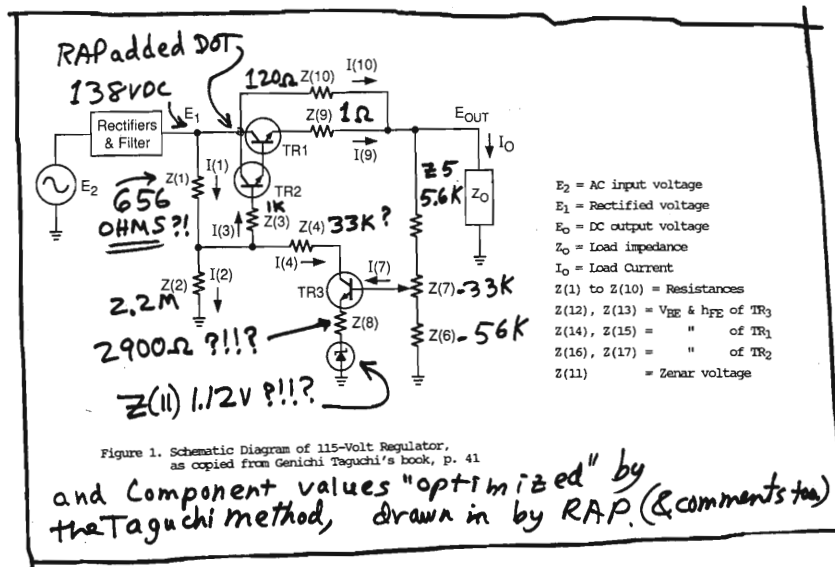 RAP added DOT,
138VDC
E₁
Rectifiers
& Filter
E₂
I(10)
120Ω Z(10)
Z(9) 1Ω
I(9)
TR1
TR2
EOUT
I₀
Z₀
Z5
5.6K
Z(1)
I(1)
656
OHMS ?!
1K
Z(3)
I(3)
Z(4) 33K ?
I(4)
I(7)
TR3
Z(2)
I(2)
2.2M
Z(7) - 33K
Z(8)
Z(6) - 56K
2900Ω ?!!?
Z(11) 1.12V ?!!?
E₂ = AC input voltage
E₁ = Rectified voltage
E₀ = DC output voltage
Z₀ = Load impedance
I₀ = Load Current
Z(1) to Z(10) = Resistances
Z(12), Z(13) = VBE & hFE of TR₃
Z(14), Z(15) = " of TR₁
Z(16), Z(17) = " of TR₂
Z(11) = Zenar voltage
Figure 1. Schematic Diagram of 115-Volt Regulator,
as copied from Genichi Taguchi's book, p. 41
and Component values "optimized" by
the Taguchi method, drawn in by RAP. (& comments too)